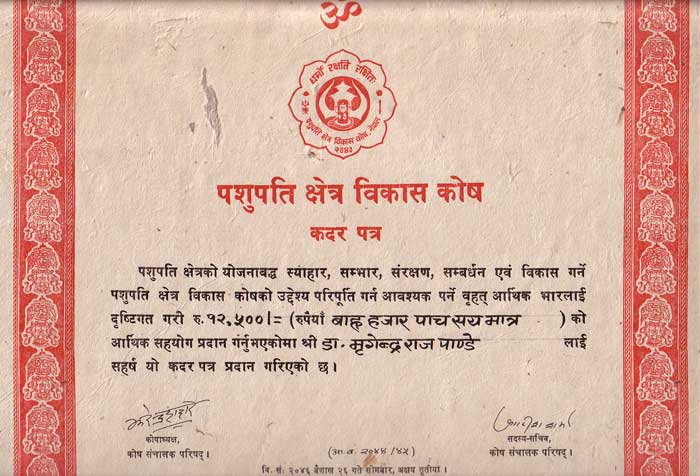 ॐ
धर्मो रक्षति रक्षितः
पशुपति क्षेत्र विकास कोष - नेपाल
२०४३
पशुपति क्षेत्र विकास कोष
कदर पत्र
पशुपति क्षेत्रको योजनाबद्ध स्याहार, सम्भार, संरक्षण, सम्बर्धन एवं विकास गर्ने
पशुपति क्षेत्र विकास कोषको उद्देश्य परिपूर्ति गर्न आवश्यक पर्ने बृहत् आर्थिक भारलाई
दृष्टिगत गरी रु. १२,५००/= (रुपैयाँ बाह्र हजार पाच सय मात्र ) को
आर्थिक सहयोग प्रदान गर्नुभएकोमा श्री डा. मृगेन्द्र राज पाण्डे लाई
सहर्ष यो कदर पत्र प्रदान गरिएको छ।
कोषाध्यक्ष, सदस्य-सचिव,
कोष संचालक परिषद्। (आ.व. २०४४/४५) कोष संचालक परिषद्।
वि. सं. २०४६ बैशाख २६ गते सोमबार, अक्षय तृतीया।